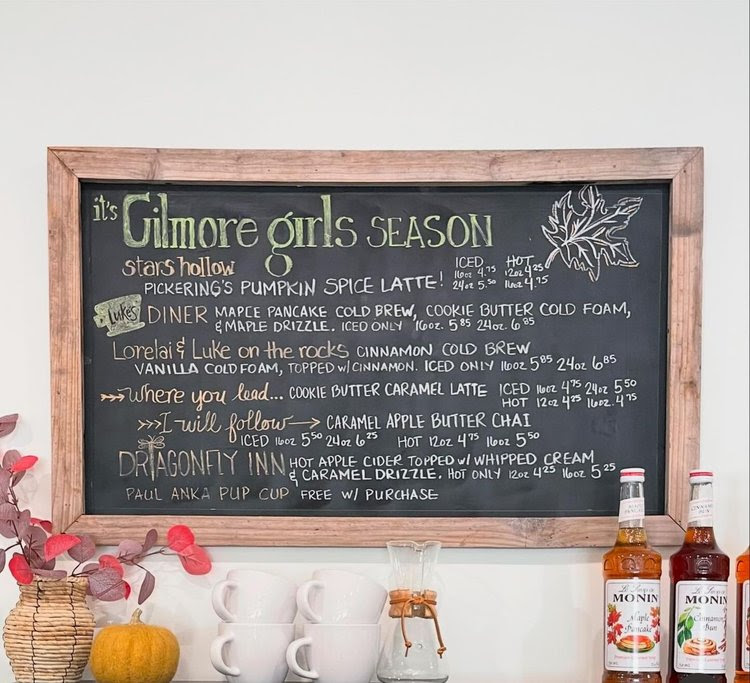 it's Gilmore girls SEASON
stars hollow
ICED HOT
PICKERING'S PUMPKIN SPICE LATTE! 16oz 4.75 12oz 4.25
24oz 5.50 16oz 4.75
Luke's DINER MAPLE PANCAKE COLD BREW, COOKIE BUTTER COLD FOAM,
& MAPLE DRIZZLE. ICED ONLY 16oz. 5.85 24oz. 6.85
Lorelai & Luke on the rocks CINNAMON COLD BREW
VANILLA COLD FOAM, TOPPED w/ CINNAMON. ICED ONLY 16oz 5.85 24oz 6.85
Where you lead... COOKIE BUTTER CARAMEL LATTE ICED 16oz 4.75 24oz 5.50
HOT 12oz 4.25 16oz. 4.75
I will follow CARAMEL APPLE BUTTER CHAI
ICED 16oz 5.50 24oz 6.25 HOT 12oz 4.75 16oz 5.50
DRAGONFLY INN HOT APPLE CIDER TOPPED w/ WHIPPED CREAM
& CARAMEL DRIZZLE. HOT ONLY 12oz 4.25 16oz 5.25
PAUL ANKA PUP CUP FREE W/ PURCHASE
MONIN
Maple
Pancake
MONIN
Cinnamon
Bun